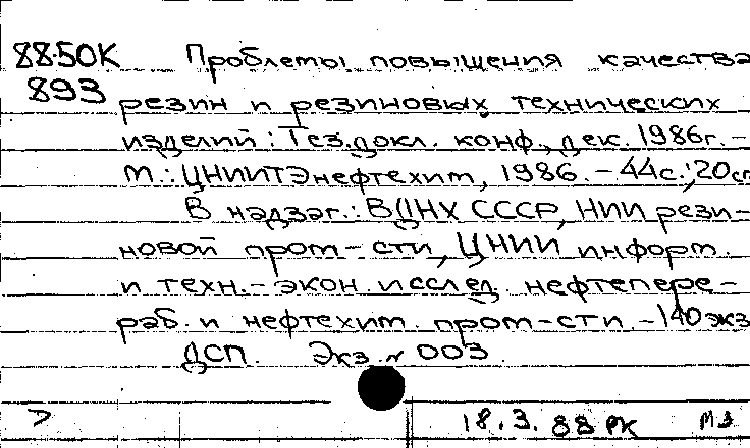 88-50К Проблемы повышения качества
893 резин и резиновых технических
изделий: Тез. докл. конф., дек. 1986г. -
М.: ЦНИИТЭнефтехим, 1986. - 44с.; 20см
В надзаг.: ВДНХ СССР, НИИ рези-
новой пром-сти, ЦНИИ информ.
и техн.-экон. исслед. нефтепере-
раб. и нефтехим. пром-сти. - 140 экз
ДСП. Экз. № 003
18.3.88 РК МЗ